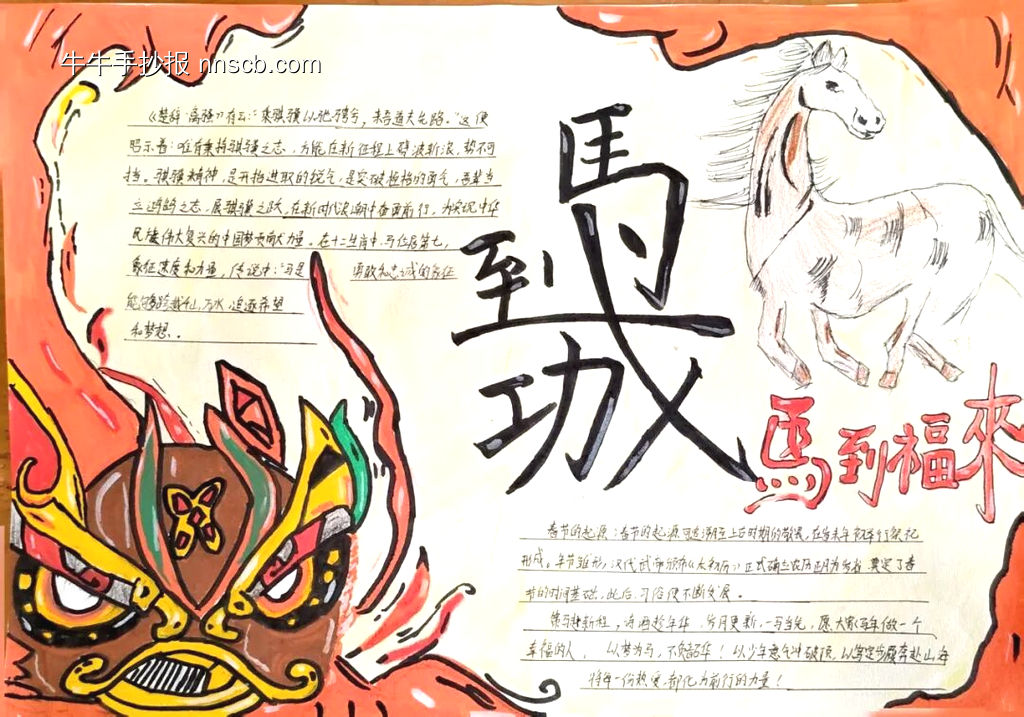 牛牛手抄报 nnscb.com
《楚辞·离骚》有云：“乘骐骥以驰骋兮，来吾道夫先路。”这便
昭示着：唯有秉持骐骥之志，方能在新征程上劈波斩浪，势不可
挡。骐骥精神，是开拓进取的锐气，是突破桎梏的勇气，吾辈当
立鸿鹄之志，展骐骥之跃，在新时代浪潮中奋勇前行，为实现中华
民族伟大复兴的中国梦贡献力量。在十二生肖中，马位居第七，
象征速度和力量，传说中：“马是 勇敢和忠诚的象征
能够跨越千山，万水，追逐希望
和梦想。
馬到功成
馬到福來
春节的起源：春节的起源可追溯至上古时期的 在岁末年初举行祭祀
形成，年节雏形，汉代武帝颁布《太初历》正式确立农历正月为岁首 奠定了春
节的时间基础，此后，习俗便不断发展。
策马赴新程，诗酒趁年华，岁月更新，一马当先，愿大家马年做一个
幸福的人， 以梦为马，不负韶华！以少年意气冲破顶，以坚定步履奔赴山海
将每一份热爱，都化为前行的力量！